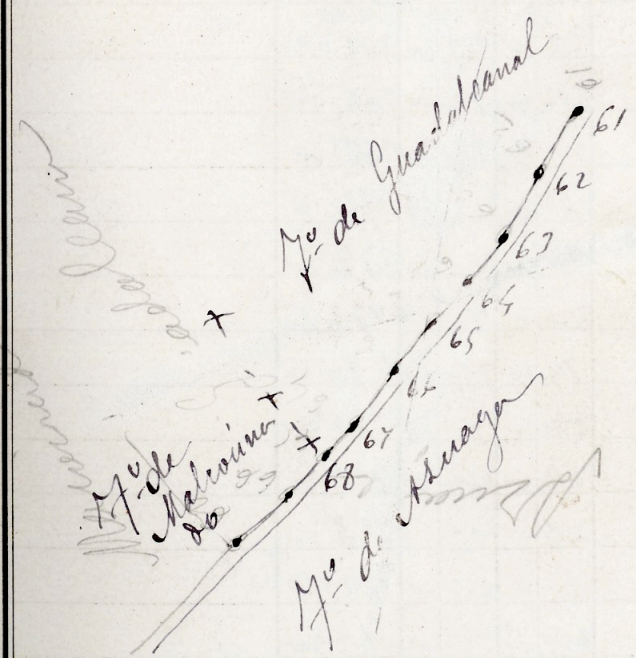 Tº de Guadalcanal
61
62
63
64
65
66
67
68
Tº de
Malcocina
do
Tº de Azuaga